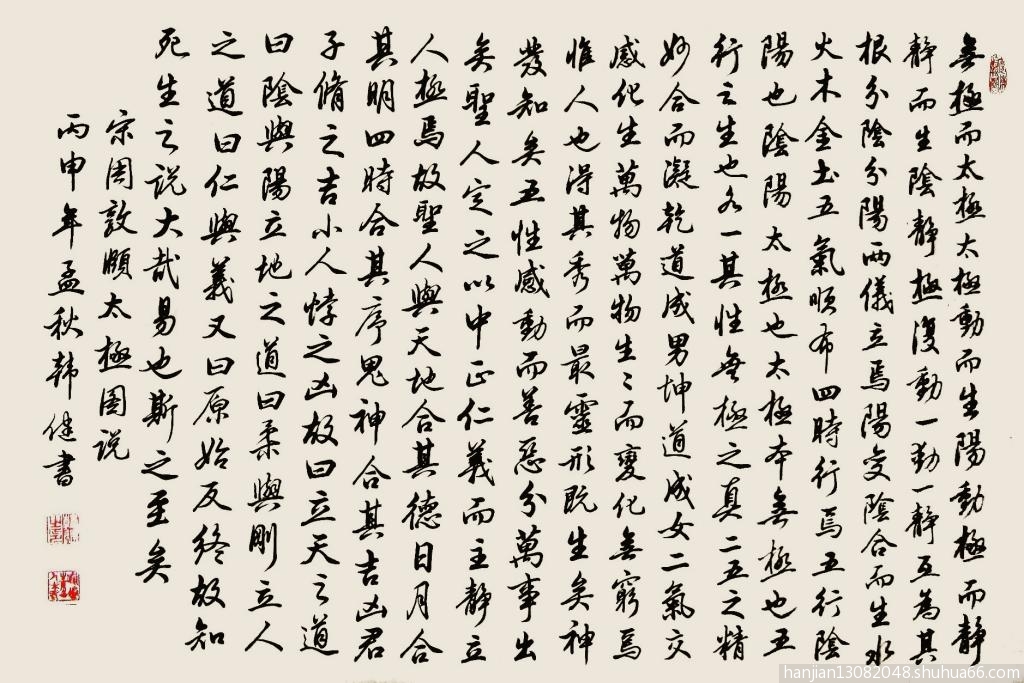 無極而太極太極動而生陽動極而靜
靜而生陰靜極復動一動一靜互為其
根分陰分陽兩儀立焉陽变陰合而生水
火木金土五氣順布四時行焉五行陰
陽也陰陽太極也太極本無極也五
行之生也各一其性無極之真二五之精
妙合而凝乾道成男坤道成女二氣交
感化生萬物萬物生〻而變化無窮焉
惟人也得其秀而最靈形既生矣神
發知矣五性感動而善惡分萬事出
矣聖人定之以中正仁義而主靜立
人極焉故聖人與天地合其德日月合
其明四時合其序鬼神合其吉凶君
子脩之吉小人悖之凶故曰立天之道
曰陰與陽立地之道曰柔與剛立人
之道曰仁與義又曰原始反終故知
死生之説大哉易也斯之至矣
宋周敦頤太極图説
丙申年孟秋韩健書
hanjian13082048.shuhua66.com